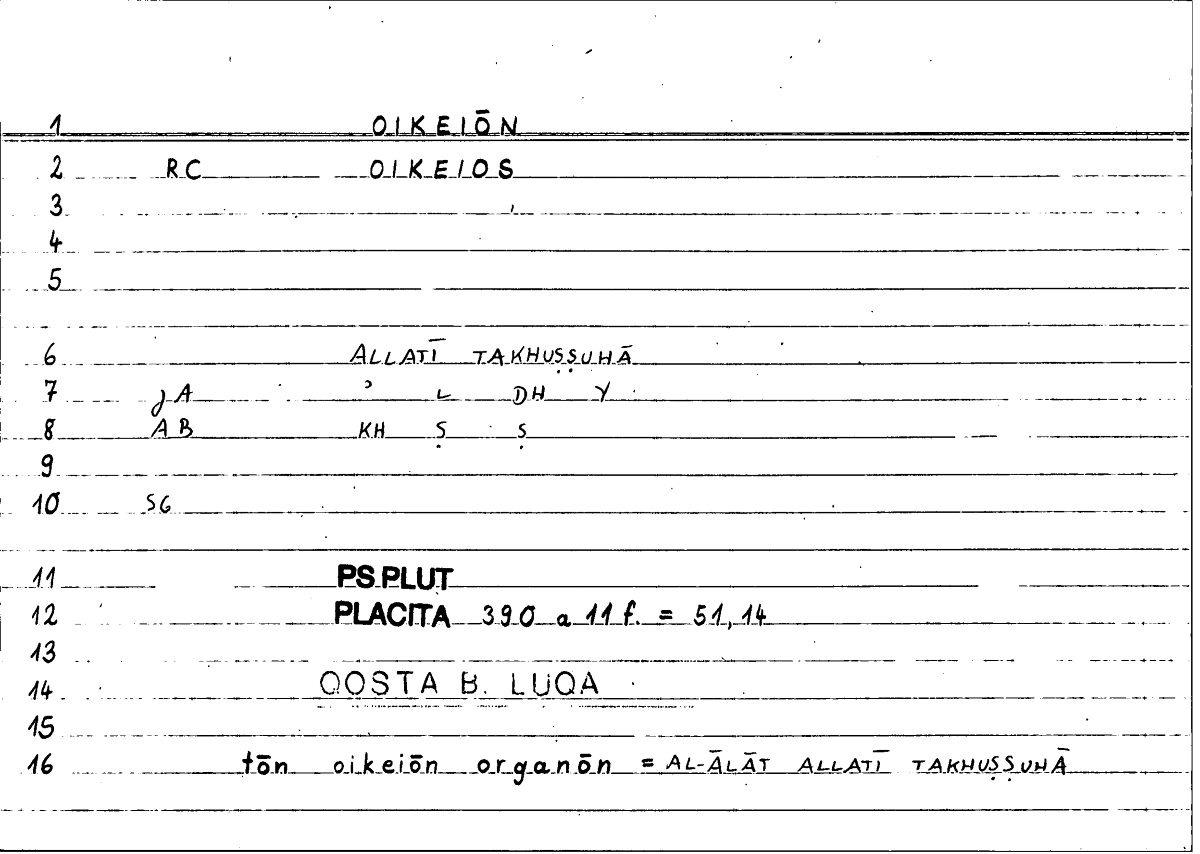 1 OIKEIŌN
2 RC OIKEIOS
3
4
5
6 ALLATĪ TAKHUṢṢUHĀ
7 JA ʾ L DH Y
8 AB KH Ṣ Ṣ
9
10 SG
11 PS.PLUT
12 PLACITA 390 a 11 f. = 51,14
13
14 QOSTA B. LUQA
15
16 tōn oikeiōn organōn = AL-ĀLĀT ALLATĪ TAKHUṢṢUHĀ